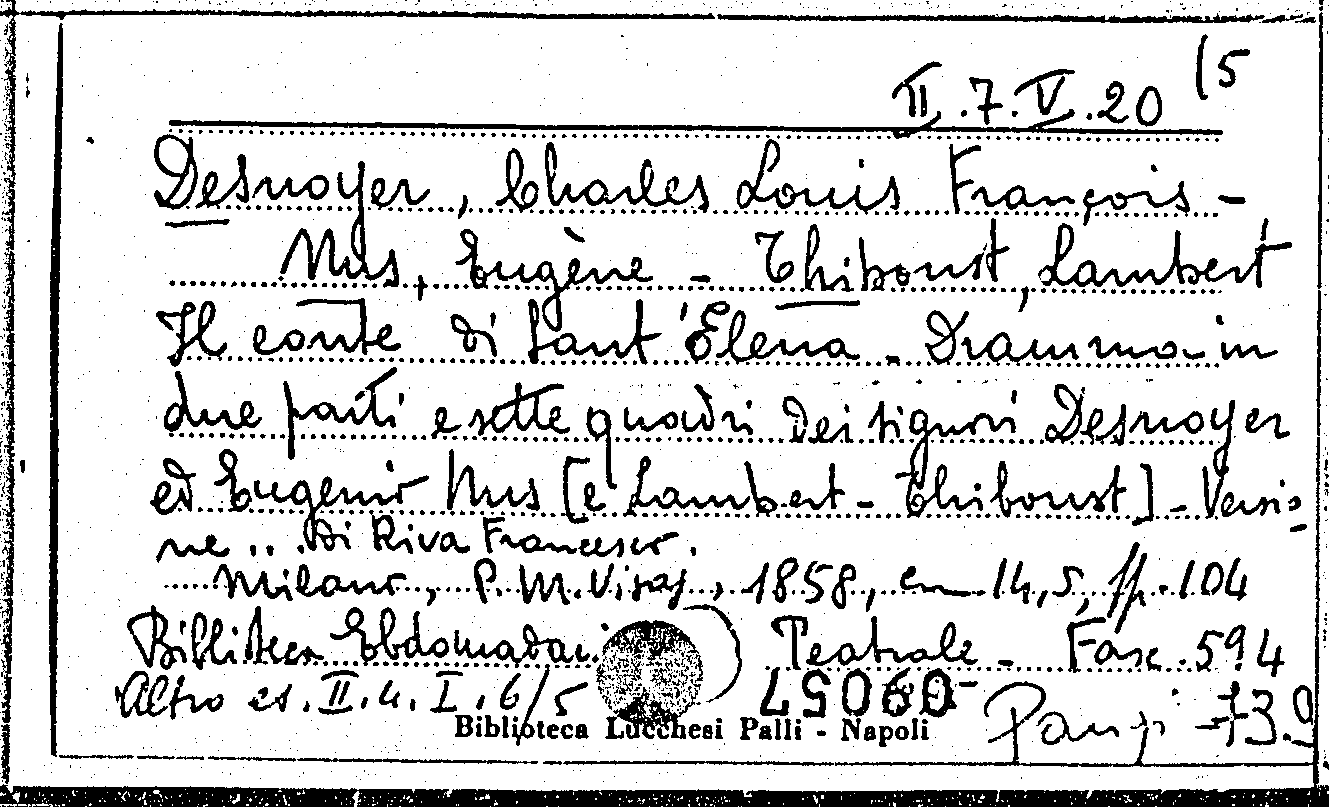 II.7.V.20 (5
Desnoyer, Charles Louis François -
Nus, Eugène - Thiboust, Lambert
Il conte di Sant'Elena - Dramma in
due parti e sette quadri dei signori Desnoyer
ed Eugenio Nus [e Lambert - Thiboust] - Versio
ne ... di Riva Francesco.
Milano, P. M. Visaj, 1858, cm 14,5, pp. 104
Biblioteca Ebdomadari Teatrale - Fasc. 594
Altro es. II.4.I.6/5 090057
Biblioteca Lucchesi Palli - Napoli